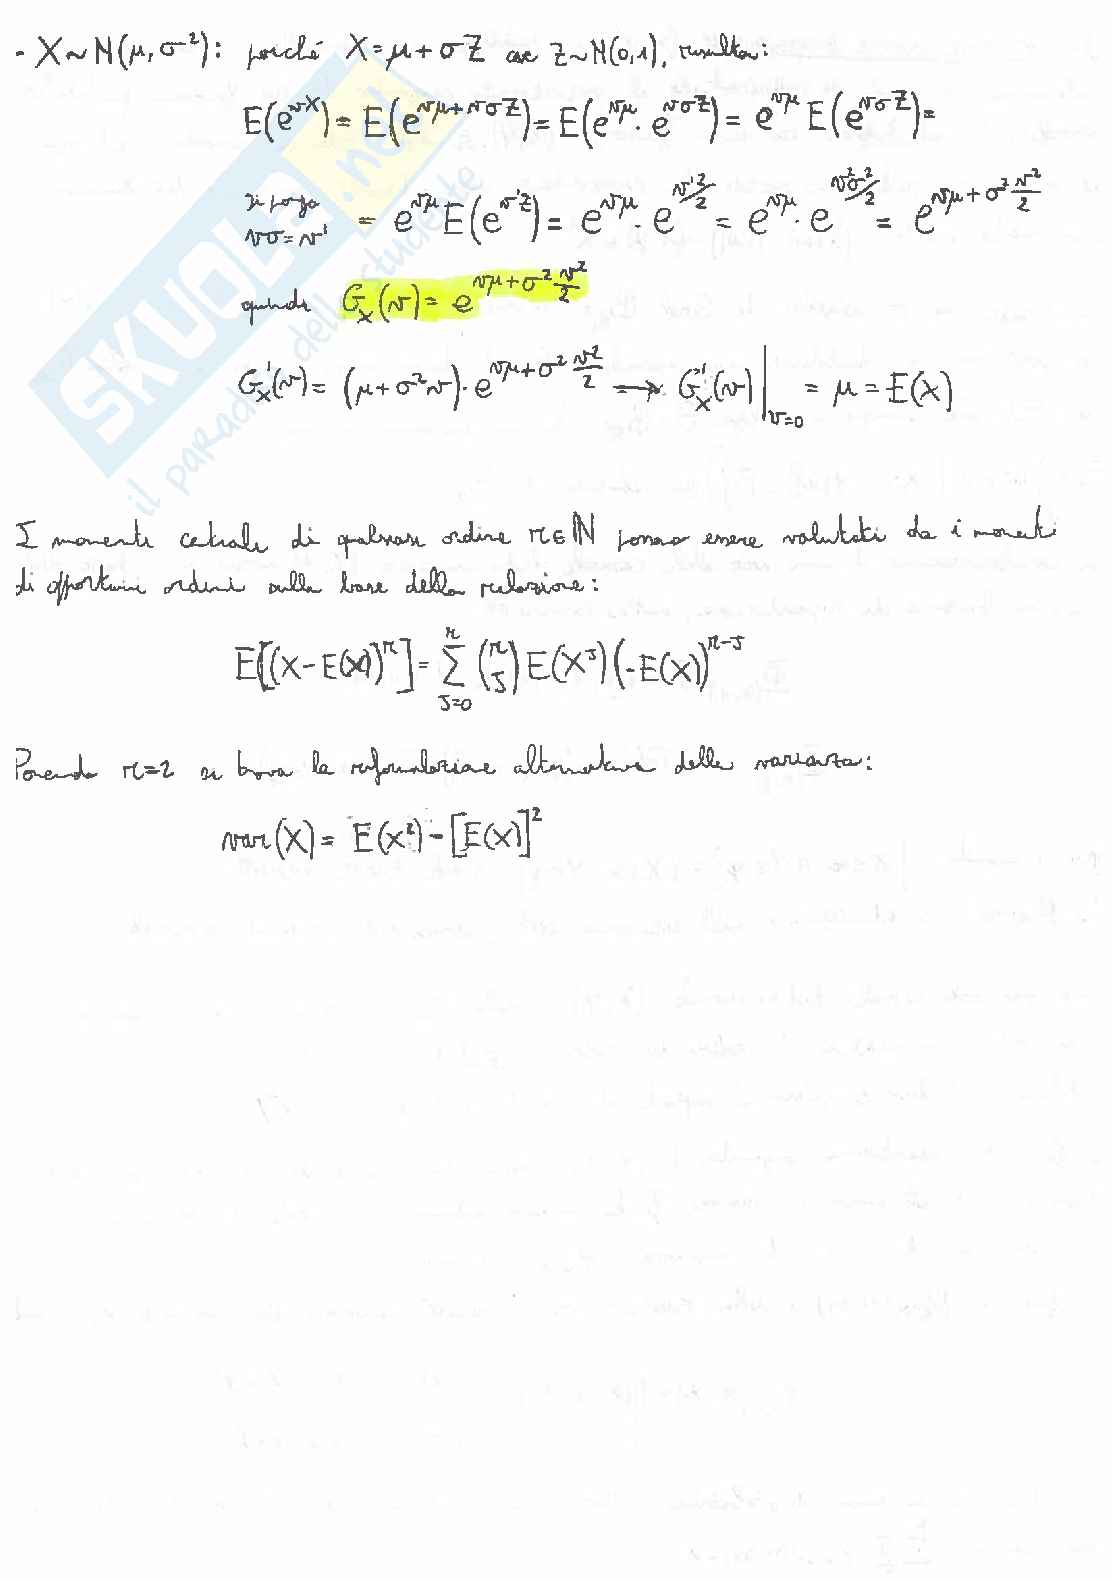 - X ~ N(μ, σ²): poiché X = μ + σZ con Z ~ N(0,1), risulta:
E(e^{vX}) = E(e^{vμ + vσZ}) = E(e^{vμ} · e^{vσZ}) = e^{vμ} E(e^{vσZ}) =
si ponga vσ = v' = e^{vμ} E(e^{v'Z}) = e^{vμ} · e^{v'²/2} = e^{vμ} · e^{v²σ²/2} = e^{vμ + σ² v²/2}
quindi G_X(v) = e^{vμ + σ² v²/2}
G_X'(v) = (μ + σ²v) · e^{vμ + σ² v²/2} → G_X'(v)|_{v=0} = μ = E(X)
I momenti centrali di qualsiasi ordine r ∈ N possono essere valutati da i momenti
di opportuni ordini sulla base della relazione:
E[(X - E(X))^r] = Σ_{J=0}^{r} (r J) E(X^J) (-E(X))^{r-J}
Ponendo r=2 si trova la riformulazione alternativa della varianza:
var(X) = E(X²) - [E(X)]²
SKUOLA.net
il paradiso dello studente